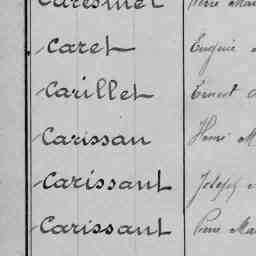 Caresmel Pierre Mar
Caret Eugène
Carillet Ernest
Carissan Henri M
Carissant Joseph
Carissant Pierre Ma